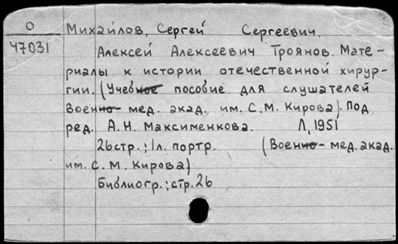 О Михайлов, Сергей Сергеевич.
47031 Алексей Алексеевич Троянов. Мате-
риалы к истории отечественной хирур-
гии. (Учебное пособие для слушателей
Военно-мед. акад. им. С.М. Кирова). Под
ред. А.Н. Максименкова. Л, 1951
26стр.; 1л. портр. (Военно-мед. акад.
им. С.М. Кирова)
Библиогр.: стр. 26